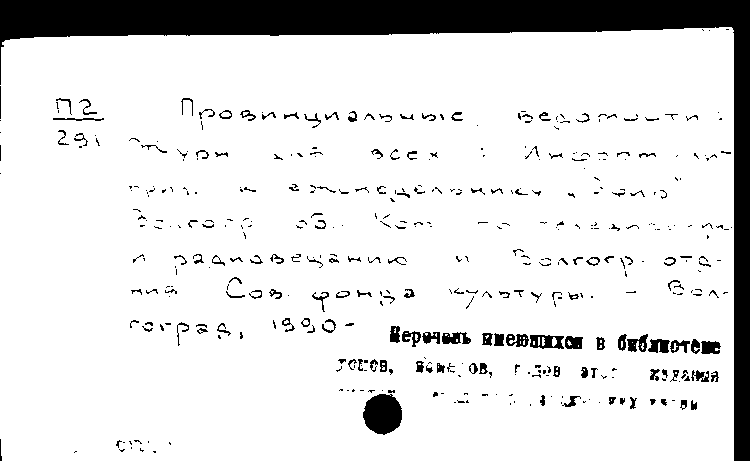 П2 Провинциальные ведомости :
291 Журн для всех : Информ лит
прил. к еженедельнику "
Волгогр об. Ком по телевидению
и радиовещанию и Волгогр. отд-
ния Сов. фонда культуры. - Вол-
гоград, 1990-
Перечень имеющихся в библиотеке
томов, номеров, годов этого издания